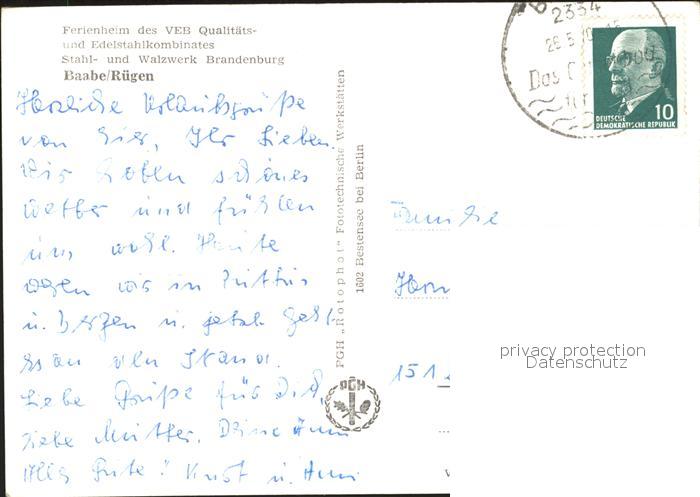 Ferienheim des VEB Qualitäts-
und Edelstahlkombinates
Stahl- und Walzwerk Brandenburg
Baabe/Rügen
Herzliche Urlaubsgrüße
von hier, Ihr Lieben.
Wir haben schönes
Wetter und fühlen
uns wohl. Heute
waren wir in Puttbus
u. Bergen u. jetzt geht
es an den Strand.
Liebe Grüße für Dich,
liebe Mutter. Deine
Alles Gute! u.
PGH „Rotophot" Fototechnische Werkstätten
1602 Bestensee bei Berlin
PGH
2334
26.5.
Das
DEUTSCHE
DEMOKRATISCHE REPUBLIK
10
Familie
151
privacy protection
Datenschutz